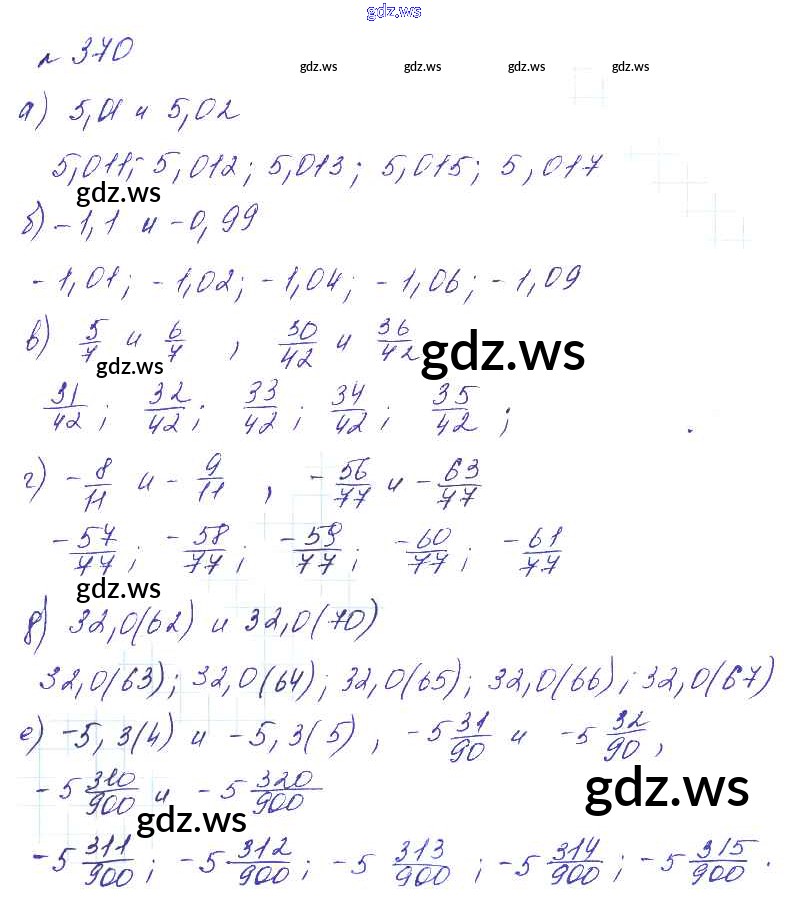 gdz.ws
№ 370
gdz.ws gdz.ws gdz.ws gdz.ws
а) 5,01 и 5,02
5,011; 5,012; 5,013; 5,015; 5,017
gdz.ws
б) -1,1 и -0,99
-1,01; -1,02; -1,04; -1,06; -1,09
в) 5/7 и 6/7 , 30/42 и 36/42
gdz.ws
gdz.ws
31/42; 32/42; 33/42; 34/42; 35/42;
г) -8/11 и -9/11 , -56/77 и -63/77
-57/77; -58/77; -59/77; -60/77; -61/77
gdz.ws
д) 32,0(62) и 32,0(70)
32,0(63); 32,0(64); 32,0(65); 32,0(66); 32,0(67)
е) -5,3(4) и -5,3(5), -5 31/90 и -5 32/90,
-5 310/900 и -5 320/900
gdz.ws
gdz.ws
-5 311/900; -5 312/900; -5 313/900; -5 314/900; -5 315/900.